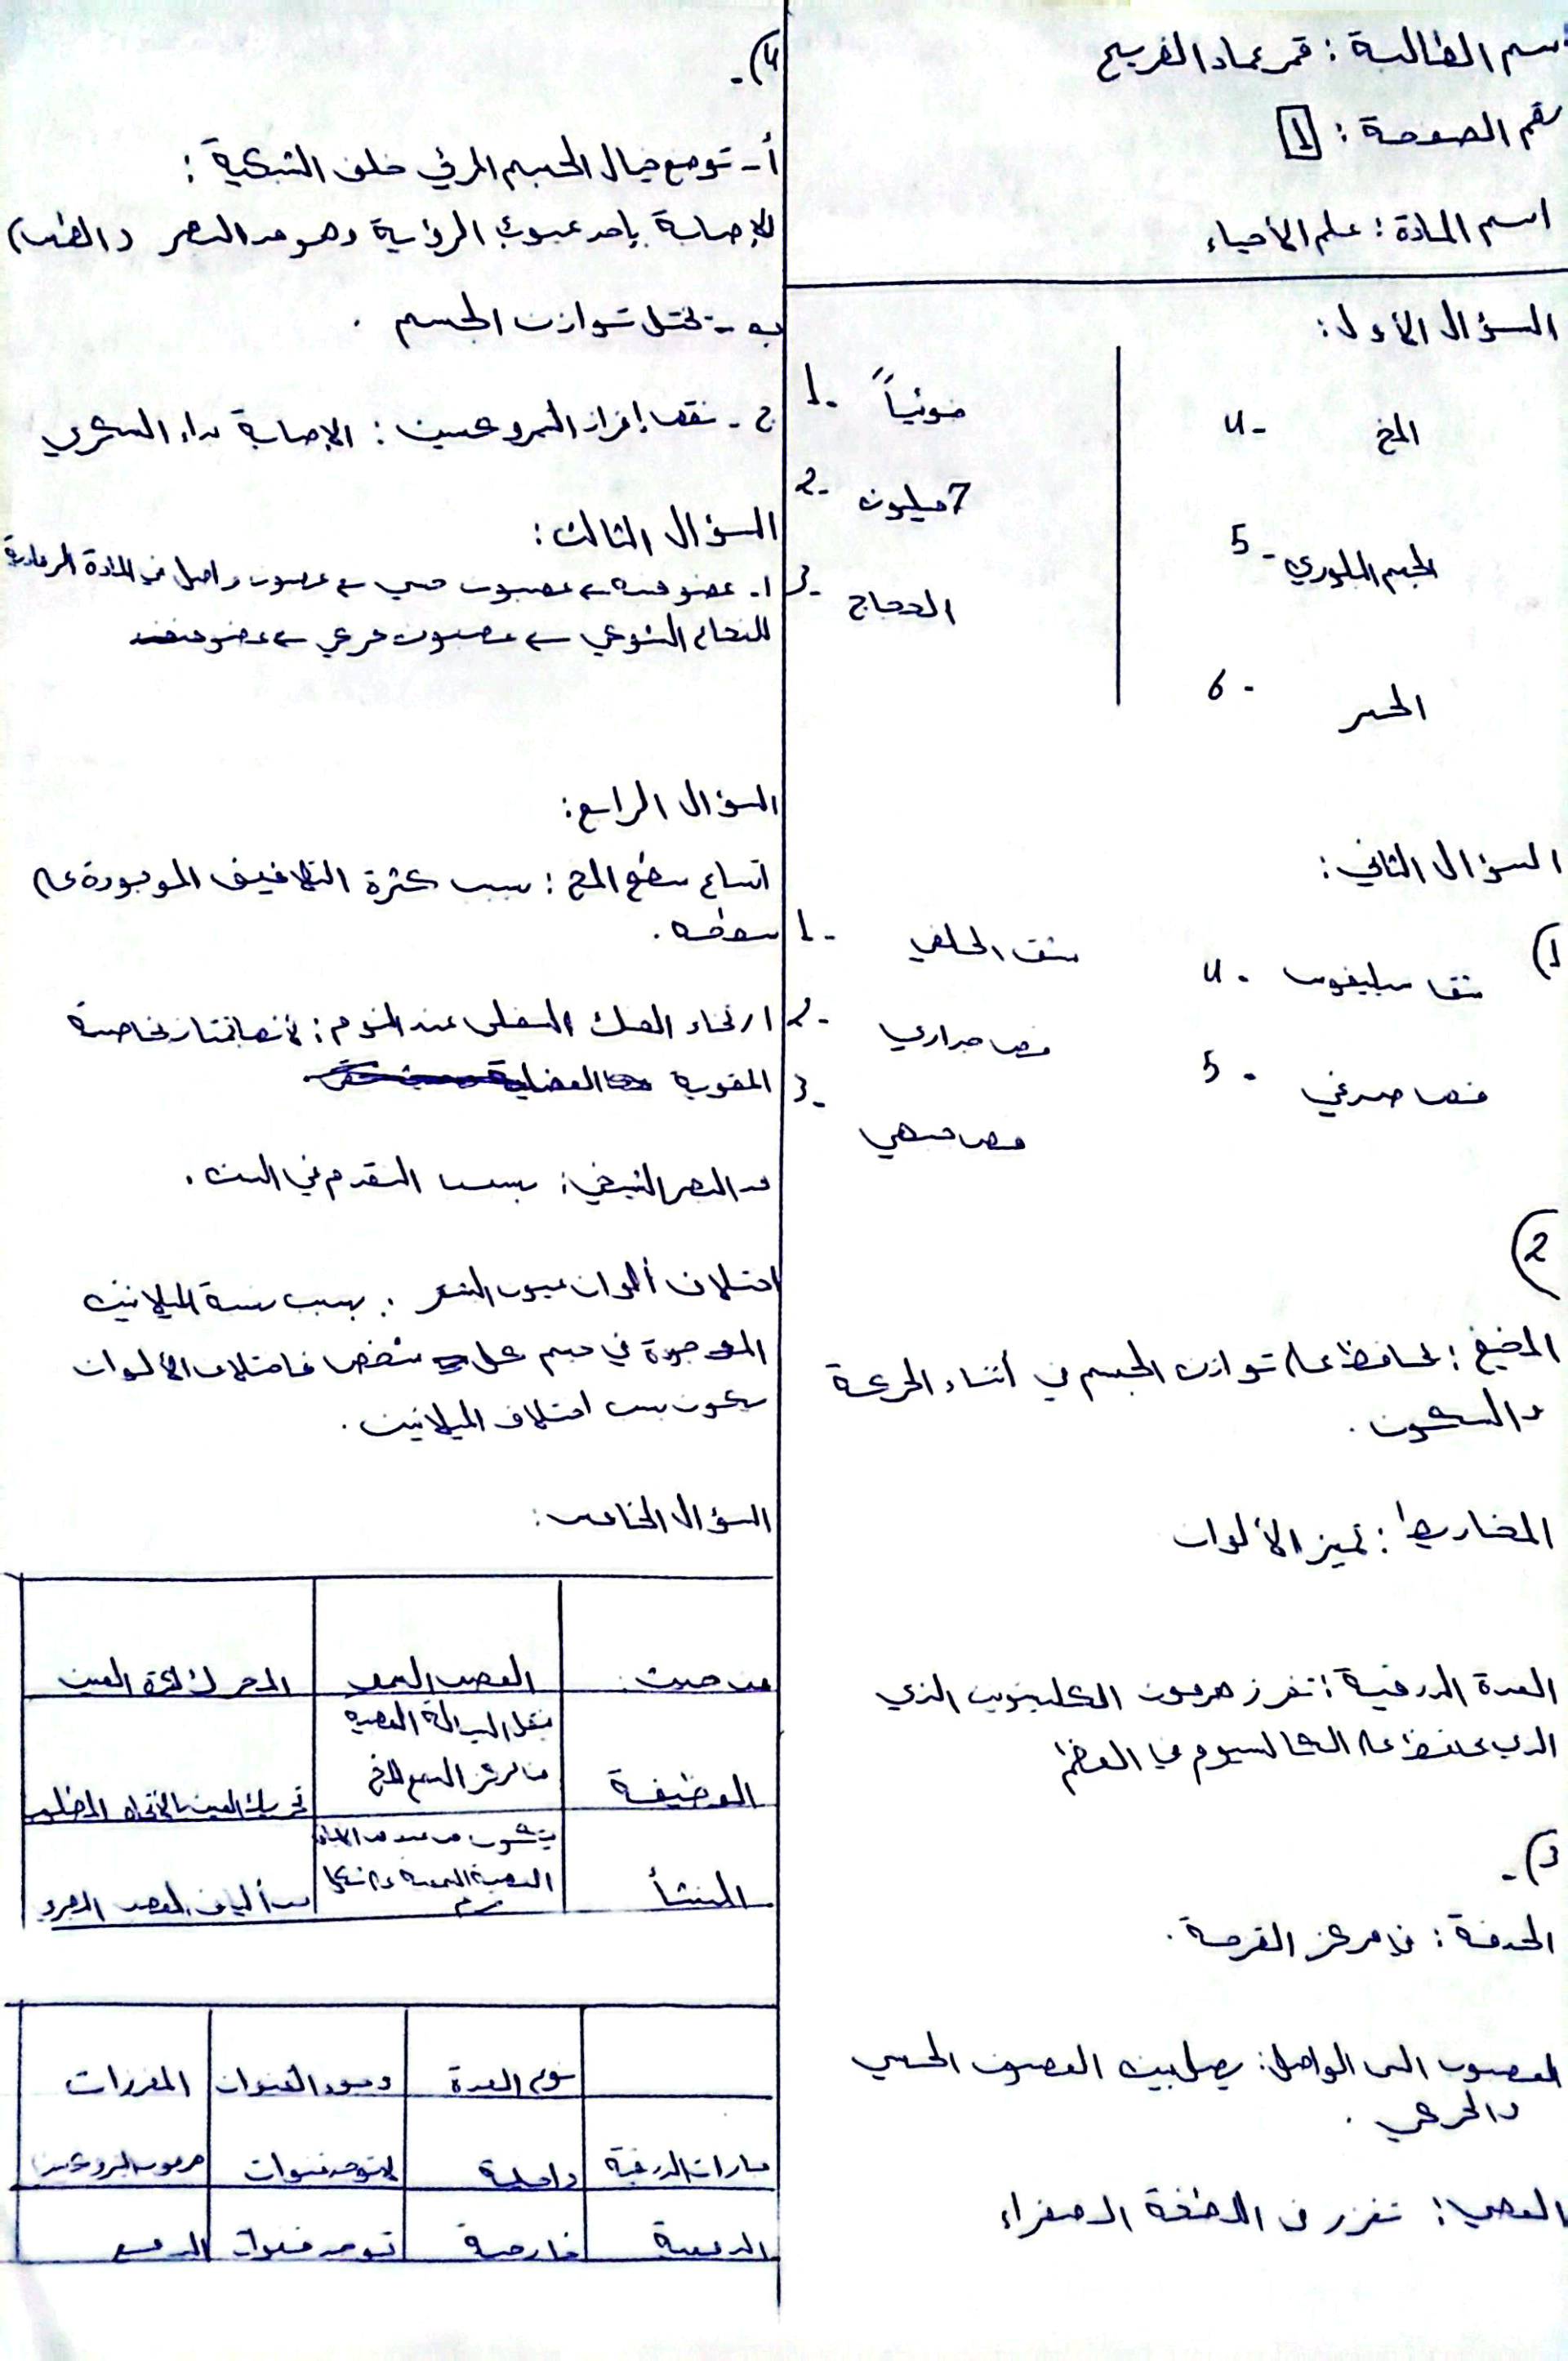 اسم الطالبة : قمر عماد الفريج
رقم الصفحة : 1
اسم المادة : علم الأحياء
السؤال الأول :
1- ضوئياً
2- 7 مليون
3- الدجاج
4- المخ
5- الجسم البلوري
6- الجسر
السؤال الثاني :
(1
1- شق الخلفي
2- فص جداري
3- فص جبهي
4- شق سيلفيوس
5- فص صدغي
(2
المخيخ : يحافظ على توازن الجسم في أثناء الحركة
والسكون .
المخاريط : تميز الألوان
الغدة الدرقية : تفرز هرمون الكليتونين الذي
الذي يحافظ على الكالسيوم في العظم
(3-
الحدقة : في مركز القزحية .
العصبون الواصل : يصل بين العصبون الحسي
والحركي .
العصي : تغزر في اللطخة الصفراء
(4-
أ- توضع خيال الجسم المرئي خلف الشبكية :
الإصابة بأحد عيوب الرؤية وهو مد البصر (الطمس)
ب- يختل توازن الجسم .
ج- نقص إفراز البنكرياس : الإصابة بداء السكري
السؤال الثالث :
1- عضو حسي ← عصبون حسي ← عصبون واصل في المادة الرمادية
للنخاع الشوكي ← عصبون حركي ← عضو منفذ
السؤال الرابع :
اتساع سطح المخ : بسبب كثرة التلافيف الموجودة على
سطحه .
ارتخاء الفك السفلي عند النوم : لأنها تمتاز بخاصية
المقوية العضلية
مد البصر الشيخي : بسبب التقدم في السن .
اختلاف ألوان عيون البشر : بسبب نسبة الميلانين
الموجودة في جسم كل شخص فاختلاف الألوان
يكون بسبب اختلاف الميلانين .
السؤال الخامس :
من حيث العصب السمعي المحرك لكرة العين
الوظيفة ينقل السيالة العصبية
من مركز السمع للمخ تحريك العين بالاتجاه المطلوب
المنشأ يتكون من عدد من الألياف
العصبية السمعية من ألياف العصب
نوع الغدة وجود القنوات المفرزات
جارات الدرقية داخلية لا توجد قنوات هرمون
الدمعية خارجية توجد قنوات الدمع